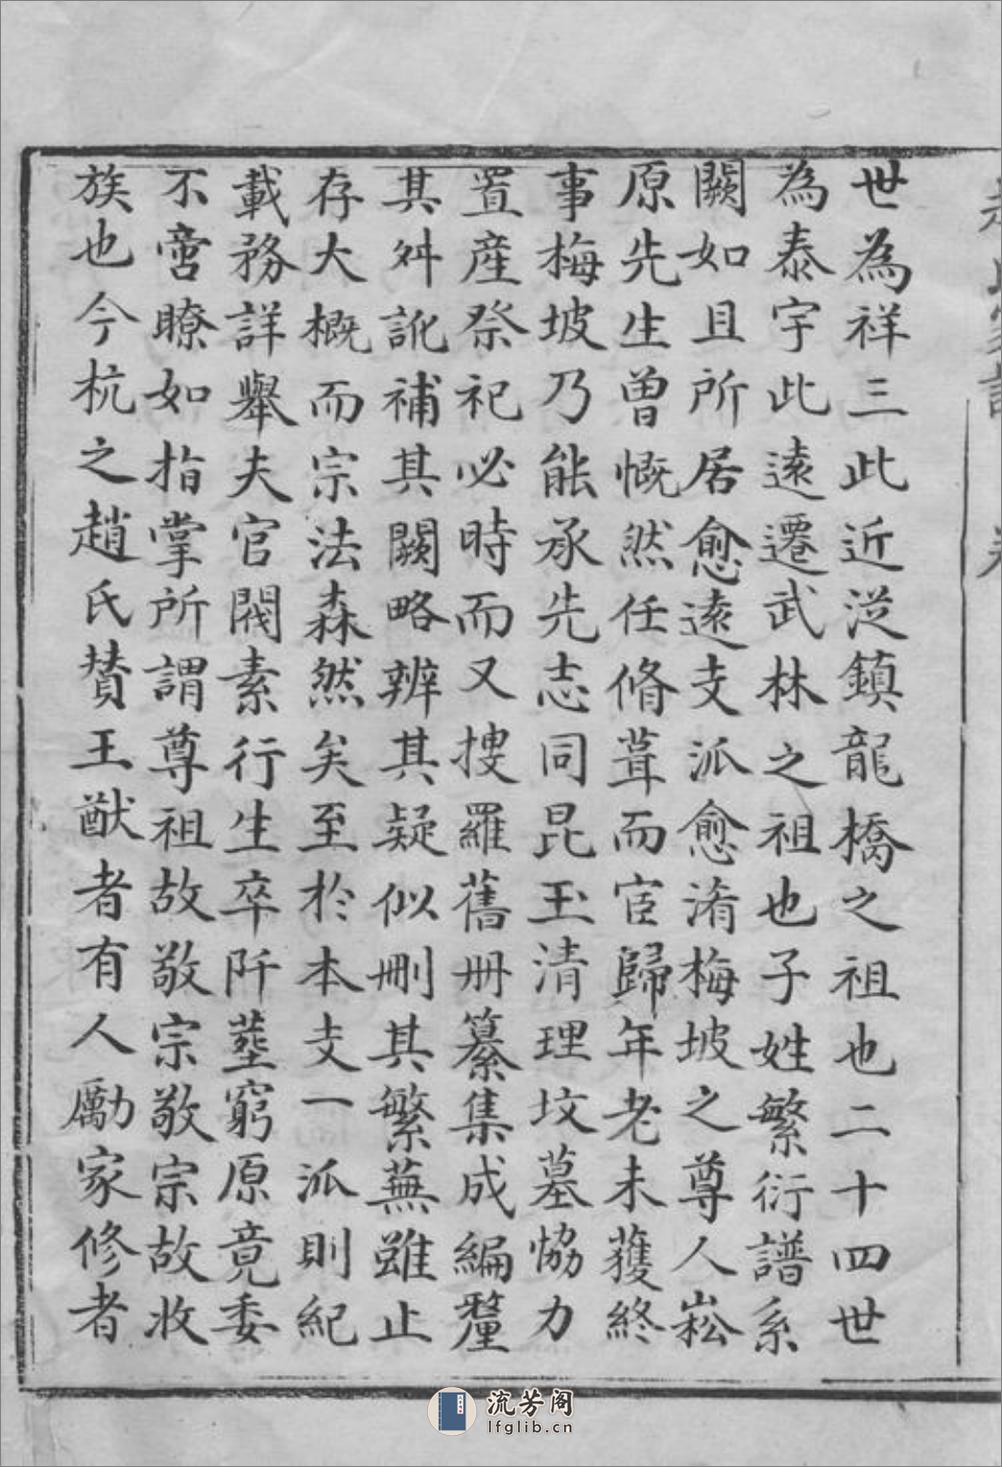 世為祥三此近從鎮龍橋之祖也二十四世
為泰宇此遠遷武林之祖也子姓繁衍譜系
闕如且所居愈遠支派愈淆梅坡之尊人崧
原先生曾慨然任脩葺而宦歸年老未獲終
事梅坡乃能承先志同昆玉清理坟墓恊力
置産祭祀必時而又搜羅舊册纂集成編釐
其舛訛補其闕略辨其疑似刪其繁蕪雖止
存大概而宗法森然矣至於本支一派則紀
載務詳舉夫官閥素行生卒阡塟窮原竟委
不啻瞭如指掌所謂尊祖故敬宗敬宗故收
族也今杭之趙氏賛王猷者有人勵家修者
流芳阁
lfglib.cn